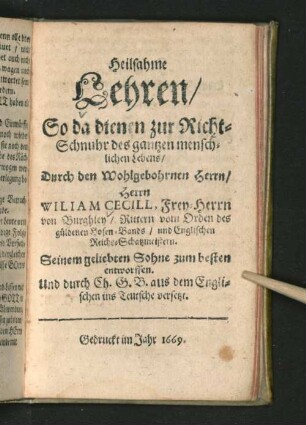 Heilsahme
Lehren/
So da dienen zur Richt-
Schnuhr des gantzen mensch-
lichen Lebens/
Durch den Wohlgebohrnen Herrn/
Herrn
WILIAM CECILL, Frey-Herrn
von Burghley/ Rittern vom Orden des
güldenen Hosen-Bands/ und Englischen
Reichs-Schatzmeistern.
Seinem geliebten Sohne zum besten
entworffen.
Und durch Ch. G. B. aus dem Engli-
schen ins Teutsche versetzt.
Gedruckt im Jahr 1669.